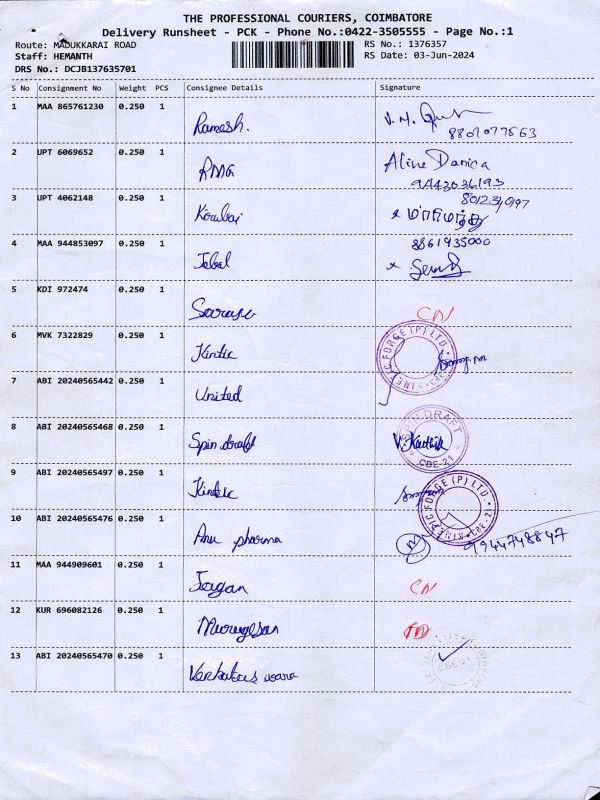 THE PROFESSIONAL COURIERS, COIMBATORE
Delivery Runsheet - PCK - Phone No.:0422-3505555 - Page No.:1
Route: MADUKKARAI ROAD
RS No.: 1376357
Staff: HEMANTH
RS Date: 03-Jun-2024
DRS No.: DCJB137635701
S No Consignment No Weight PCS Consignee Details Signature
1 MAA 865761230 0.250 1
Ramesh.
8801077563
2 UPT 6069652 0.250 1 Aline Danica
RMG
9443036193
3 UPT 4062148 0.250 1 8012340197
Kovibai
4 MAA 944853097 0.250 1 8861935000
Iqbal
5 KDI 972474 0.250 1
CN
6 MVK 7322829 0.250 1
KINETIC FORGE (P) LTD. CBE-21
Kintic
7 ABI 20240565442 0.250 1
United
8 ABI 20240565468 0.250 1
SPIN DRAFT CBE-21
Spin draft V. Karthik
9 ABI 20240565497 0.250 1
KINETIC FORGE (P) LTD. CBE-21
Kintic
10 ABI 20240565476 0.250 1
Anu pharma 9944748847
11 MAA 944909601 0.250 1
Jagan CN
12 KUR 696082126 0.250 1
Murugesan
13 ABI 20240565470 0.250 1
CBE-21